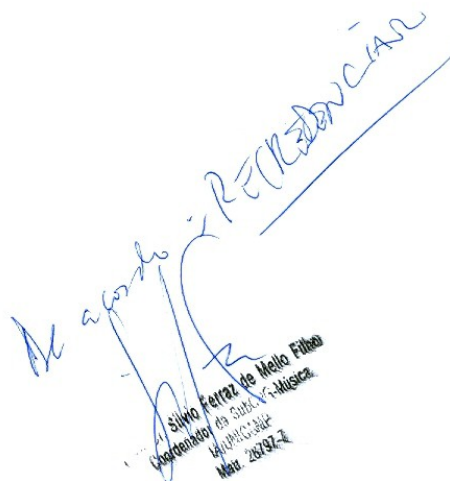 De acordo RECREDENCIAR
Silvio Ferraz de Mello Filho
Coordenador da -Música
UNICAMP
Matr. 28797-